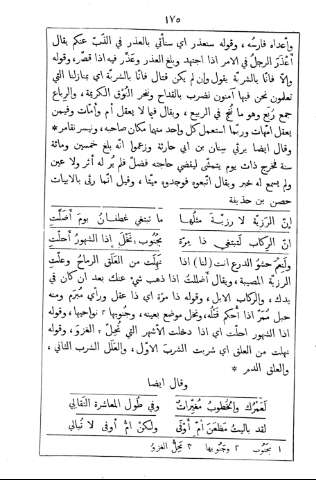 ١٧٥
وأعداء فارسه، وقوله سنعذر اي سنأتي بالعذر في الذبّ عنكم يقال
أَعْذَرَ الرجلُ في الامر اذا اجتهد وبلغ العذر وعَذَّر فيه اذا قصّر، وقوله
وإلّا فأنّا بالشربّة يقول وإن لم يكن قتال فأنّا بالشربّة اي بمنازلنا التي
تعلمون نحن فيها آمنون نضرب بالقداح وننحر النُوق الكريمة، والرِباع
جمع رُبَع وهو ما نُتِج في الربيع، ويقال فيما لا يعقل أم وأمّات وفيمن
يعقل امّهات وربّما استعمل كل واحد منهما مكان صاحبه، ونيسر نقامر *
وقال ايضا يرثي سنان بن ابي حارثة وزعموا انه بلغ خمسين ومائة
سنة فخرج ذات يوم يتمشّى ليقضي حاجته فضلّ فلم يُر له أثر ولا عين
ولم يسمع له خبر ويقال اتّبعوه فوجدوه ميّتا، وقيل انما رثى بالابيات
حصن بن حذيفة
إنّ الرَزِيّةَ لا رزيةَ مثلُها ما تبتغي غطفانُ يومَ أضلّتِ
إنّ الركاب لتبتغي ذا مِرّة بجنوب نَخْلَ إذا الشهورُ أحلّتِ
ولَنِعْمَ حشو الدرع انت (لنا) اذا نَهِلَت من العَلَق الرماحُ وعلّتِ
الرزيّة المصيبة، ويقال أضللتُ اذا ذهب شيء عنك بعد ان كان في
يدك، والركاب الابل، وقوله ذا مرّة اي ذا عقل ورأي مبرَم ومنه
حبل مُمَرّ اذا أُحكم فَتْلُه، ونخل موضع بعينه، وجنوبها نواحيها، وقوله
اذا الشهور احلّت اي اذا دخلت الأشهر التي تُحِلّ الغزو، وقوله
نهلت من العلق اي شربت الشرب الاوّل، والعَلَل الشرب الثاني،
والعلق الدم *
وقال ايضا
لَعَمْرُك والخُطوبُ مُغَيِّراتٌ وفي طُول المعاشرة التَقالي
لقد باليتُ مَظْعَنَ أمّ أَوْفَى ولكنْ امُّ أوفى لا تُبالي
١ بجنُوب ٢ وجنُوبها ٣ تُحِلّ الغزوُ